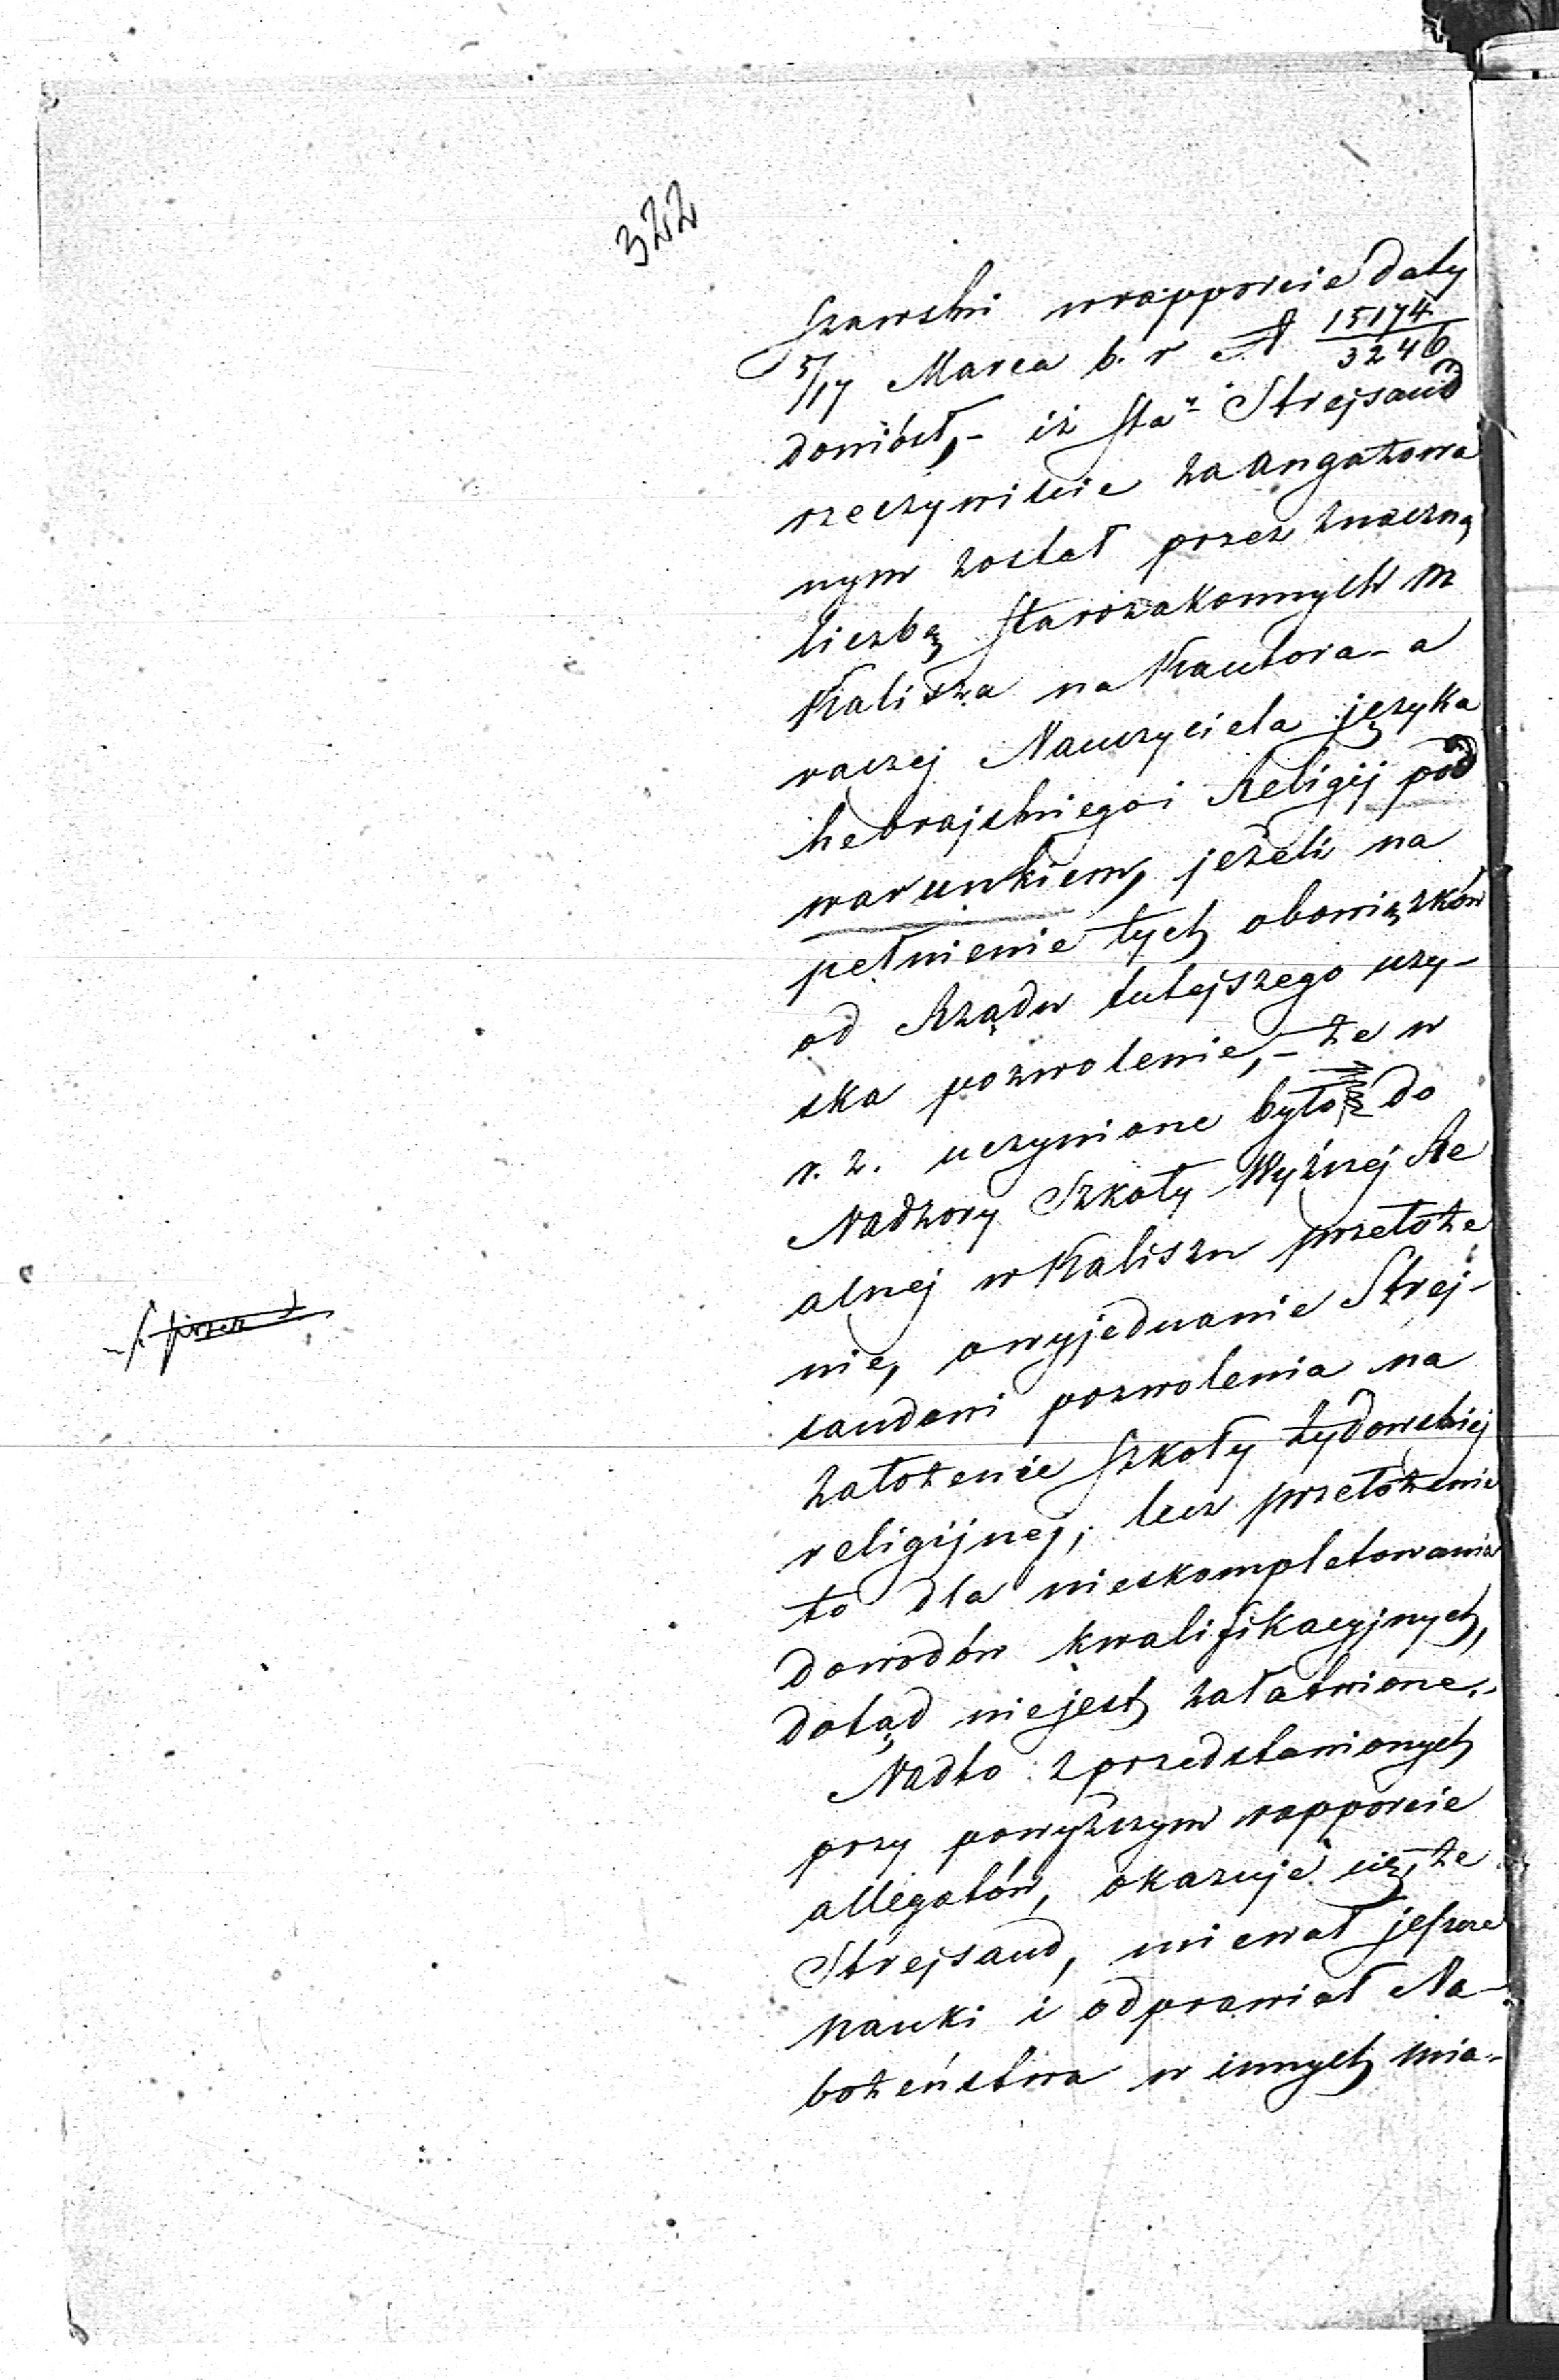 322
szawski w rapporcie daty
5/17 Marca b. r № 15174/3246
doniósł, - iż Sta: Strejsand
rzeczywiście zaangażowa
nym został przez znaczną
liczbę Starozakonnych m
Kalisza na Kantora - a
raczej Nauczyciela języka
hebrajskiego i Religij pod
warunkiem, jeżeli na
pełnienie tych obowiązków
od Rządu tutejszego uzy-
ska pozwolenie, - że w
r. z. uczynione było do
Nadzory Szkoły Wyższej Re
alnej w Kaliszu przełoże
nie, o wyjednanie Strej-
sandowi pozwolenia na
założenie Szkoły żydowskiej
religijnej; lecz przełożenie
to dla nieskompletowania
dowodów kwalifikacyjnych,
dotąd nie jest załatwione.-
Nadto z przedstawionych
przy powyższym rapporcie
allegatów, okazuje się, że
Strejsand, miewał jeszcze
nauki i odprawiał Na-
bożeństwa w innych mia-
przez